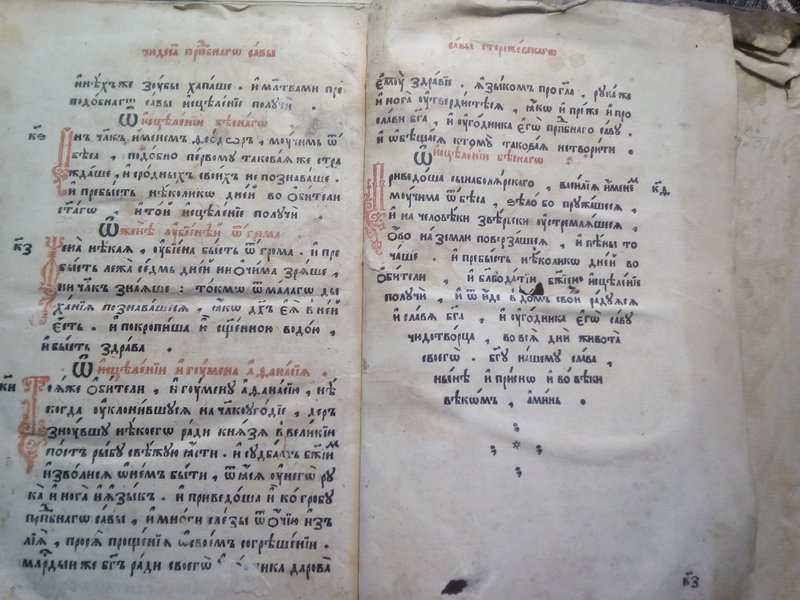 чюдеса̀ прⷣпбнагѡ са́вы
и҆нѣ́хъже зꙋбы хапаше . и҆ мл҃твами пре
подо́бнагѡ савы и҆сцѣле́нїе получи .
Ѿ и҆сцѣле́нїи бѣснагѡ
кѕ
инъ чл҃къ и҆менемъ ѳео́дѡръ , мо́учимь ѿ
бѣса , подо́бно первому такова́я же стра
жда́ше , и҆ сро́дныхъ свои́хъ не познава́ше .
и҆ пребы́сть нѣ́колико дне́й во ѻ҆би́тели
ст҃а́гѡ , и҆ то́й и҆сцѣле́нїе получѝ .
Ѿ женѣ̀ оу҆бїе́нѣй ѿ гро́ма
кз
Жена̀ нѣ́кая , оу҆бїе́на бы́сть ѿ гро́ма . и҆ пре
бы́сть лежа̀ се́дмь дне́й ни ѻ҆чи́ма зрѧ̀ше ,
ни чл҃къ зна́яше : то́кмѡ ѿ ма́лагѡ ды
ха́нїя познава́шесѧ , ꙗ҆́кѡ дх҃ъ є҆ѧ̀ в не́й
є҆́сть . и҆ покропи́ша ю҆̀ сщ҃е́нною водо́ю ,
и҆ бы́сть здра́ва .
Ѿ и҆сцѣле́нїи и҆гоу́мена а҆ѳана́сїѧ .
ки
Тоѧ́же ѻ҆би́тели , и҆гоу́мену а҆ѳана́сїю , нѣ́
когда оу҆клони́вшусѧ на чл҃коуго́дїе , деръ
знꙋ́вшу нѣ́коего ра́ди кнѧ́зѧ в вели́кїи
по́стъ ры́бу свѣ́жую ꙗ҆́сти . и҆ судба́мъ бж҃їимъ
и҆зво́лисѧ ѡ҆ не́мъ бы́ти , ѿꙗ́сѧ оу҆ негѡ̀ ру
ка̀ и҆ нога̀ и҆ ꙗ҆зы́къ . и҆ приведо́ша и҆̀ ко гро́бу
прⷣпбнагѡ са́вы , и҆ мно́ги сле́зы ѿ ѻ҆чі́ю и҆зъ
лїѧ̀ , просѧ̀ проще́нїя ѡ҆ свое́мъ согрѣше́нїи .
млⷭрдыи же бг҃ъ ра́ди своегѡ̀ дарова̀
са́вы сторо́жевскагѡ
є҆моу̀ здра́вїе . ꙗ҆зы́комъ прогл҃а , рука́ же
и҆ нога̀ оу҆тверди́стесѧ , ꙗ҆́кѡ и҆ пре́же и҆ про
сла́ви бг҃а , и҆ оу҆го́дника є҆гѡ̀ прⷣпбнаго са́ву .
и҆ ѡ҆бѣща́сѧ ктому такова́я не твори́ти .
Ѿ и҆сцѣле́нїи бѣ́снагѡ .
кд
Приведо́ша сы́на боля́рскаго , васи́лїя и҆́менемъ
моучима ѿ бѣ́са , ѕѣло̀ бо пружа́шесѧ ,
и҆ на человѣ́ки ѕвѣ́рьски оу҆стремля́шесѧ ,
ѻ҆́во на землѝ поверза́шесѧ , и҆ пѣ́ны то
ча́ше . и҆ пребы́сть нѣ́колико дне́й во
ѻ҆би́тели , и҆ бл҃года́тїю бж҃їею и҆сцѣле́нїе
получѝ , и҆ ѿи́де в до́мъ сво́й ра́дуясѧ
и҆ сла́вѧ бг҃а , и҆ оу҆го́дника є҆гѡ̀ са́ву
чюдотво́рца , во всѧ̀ дни́ живота̀
своегѡ̀ . бг҃у на́шему сла́ва ,
ны́нѣ и҆ при́снѡ и҆ во вѣ́ки
вѣкѡ́мъ , а҆ми́нь .
кз